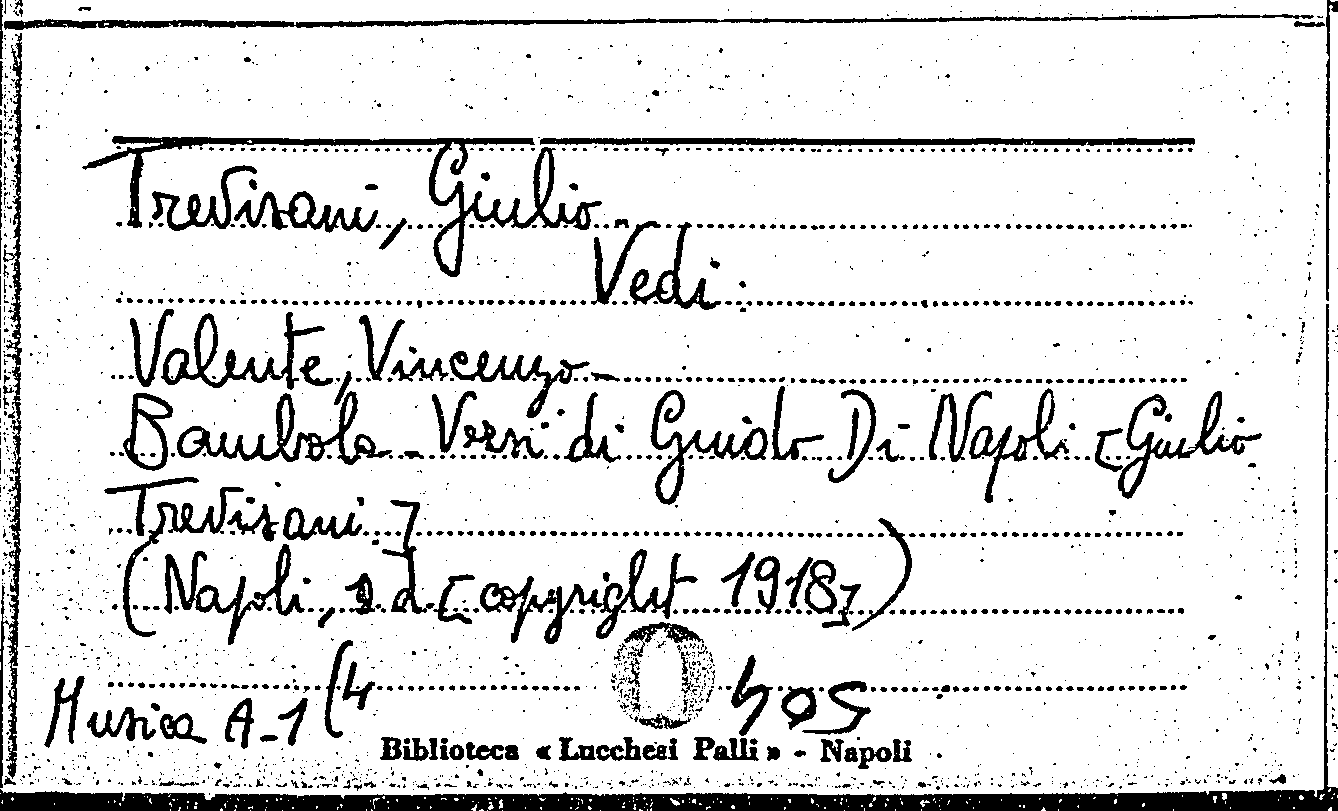 Trevisani, Giulio -
Vedi:
Valente, Vincenzo -
Bambola - Versi di Guido Di Napoli [Giulio
Trevisani.]
(Napoli, s. d. [copyright 1918])
Musica A-1 (4 405
Biblioteca « Lucchesi Palli » - Napoli